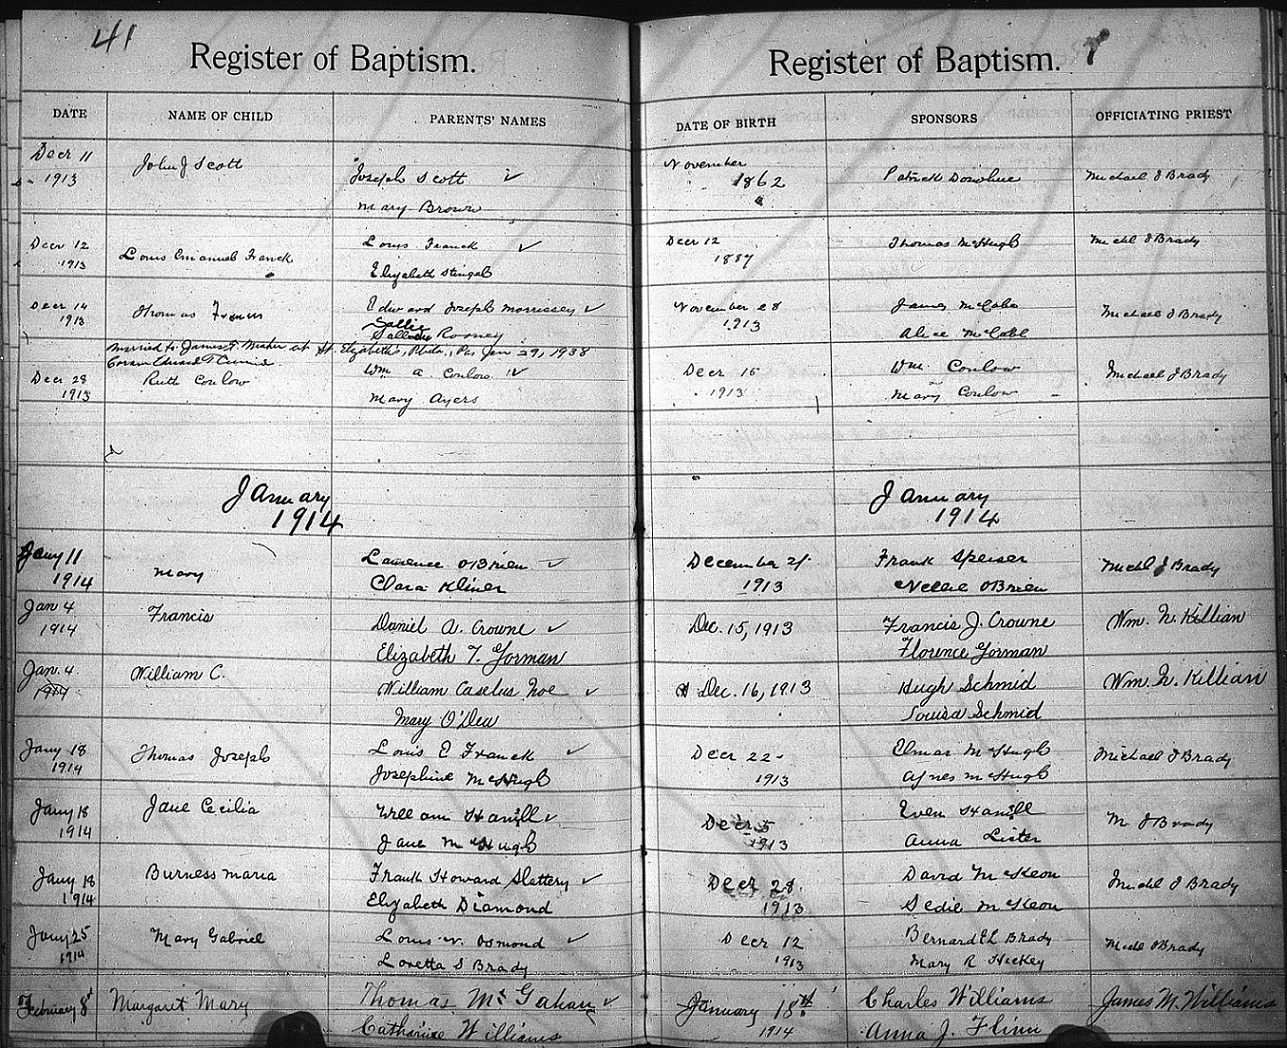 41
Register of Baptism.
DATE NAME OF CHILD PARENTS' NAMES
Decr 11 1913
John J Scott
Joseph Scott
Mary Brown
Decr 12 1913
Louis Emanuel Franck
Louis Franck
Elizabeth Stengal
Decr 14 1913
Thomas Francis
Edward Joseph Morrissey
Sallie
Rooney
Married to James F. Meaher at St. Elizabeth's, Phila., Pa, Jan 29, 1938
Coram Edward T
Decr 28 1913
Ruth Conlow
Wm a Conlow
Mary Ayers
January
1914
Jany 11 1914
Mary
Lawrence O'Brien
Clara Kliner
Jan 4 1914
Francis
Daniel A. Crowne
Elizabeth T. Gorman
Jan. 4 1914
William C.
William Caselus Noe
Mary O'Dea
Jany 18 1914
Thomas Joseph
Louis E Franck
Josephine McHugh
Jany 18 1914
Jane Cecilia
William Hamill
Jane McHugh
Jany 18 1914
Burness Maria
Frank Howard Slattery
Elizabeth Diamond
Jany 25 1914
Mary Gabriel
Louis V. Osmond
Loretta S Brady
February 8
Margaret Mary
Thomas McGahan
Catharine Williams
Register of Baptism.
DATE OF BIRTH SPONSORS OFFICIATING PRIEST
November 1862
Patrick Donohue
Michael J Brady
Decr 12 1887
Thomas McHugh
Michl J Brady
November 28 1913
James McCabe
Alice McCabe
Michael J Brady
Decr 15 1913
Wm Conlow
Mary Conlow
Michael J Brady
January
1914
December 21 1913
Frank Speiser
Nellie O'Brien
Michl J Brady
Dec. 15, 1913
Francis J. Crowne
Florence Gorman
Wm. N. Killian
Dec. 16, 1913
Hugh Schmid
Louisa Schmid
Wm. N. Killian
Decr 22 1913
Elmar McHugh
Agnes McHugh
Michael J Brady
Decr 5 1913
Even Hamill
Anna Lister
M J Brady
Decr 28. 1913
David McKeon
Sedie McKeon
Michl J Brady
Decr 12 1913
Bernard EL Brady
Mary R Hickey
Michl J Brady
January 18th 1914
Charles Williams
Anna J. Flinn
James M. Williams